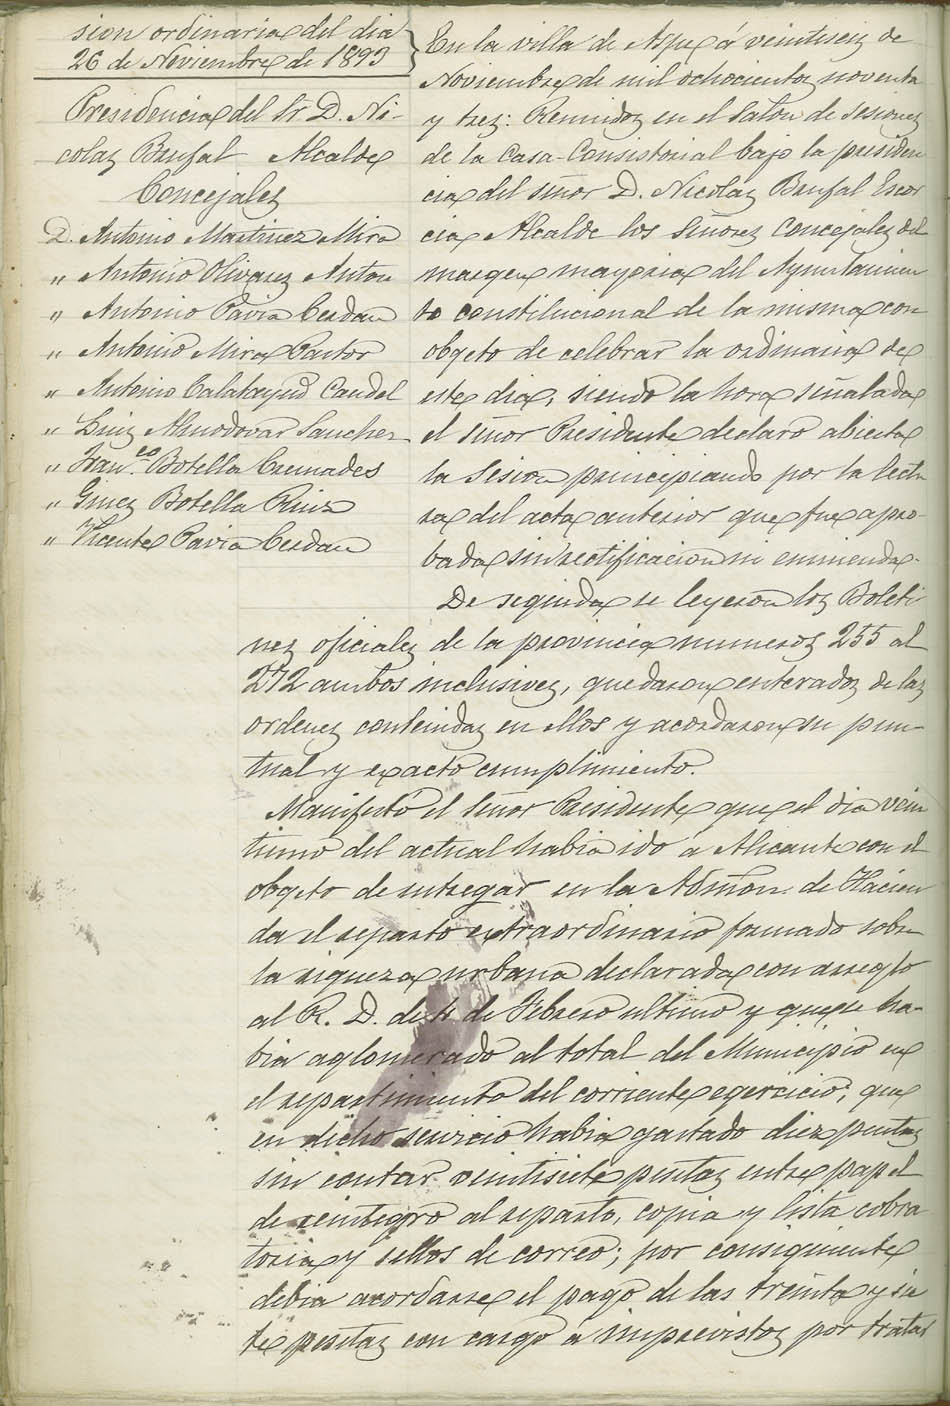 sion ordinaria del dia
26 de Noviembre de 1893
Presidencia del Sr. D. Ni-
colas Brufal Alcalde
Concejales
D. Antonio Martinez Mira
" Antonio Olivares Anton
" Antonio Pavia Cerdan
" Antonio Mira Pastor
" Antonio Calatayud Caudel
" Luis Almodovar Sanchez
" Fran.co Botella Cremades
" Gines Botella Ruiz
" Vicente Pavia Cerdan
En la villa de Aspe á veintiseis de
Noviembre de mil ochocientos noventa
y tres: Reunidos en el Salon de sesiones
de la Casa-Consistorial bajo la presiden
cia del señor D. Nicolas Brufal Escor
cia Alcalde los Señores Concejales del
margen mayoria del Ayuntamien
to constitucional de la misma con
obgeto de celebrar la ordinaria de
este dia, siendo la hora señalada
el señor Presidente declaro abierta
la Sesion principiando por la lectu
ra del acta anterior que fue apro-
bada sin rectificacion ni enmienda.
De seguida se leyeron los Boleti
nes oficiales de la provincia numeros 255 al
272 ambos inclusives, quedaron enterados de las
ordenes contenidas en ellos y acordaron su pun-
tual y exacto cumplimiento.
Manifestó el Señor Presidente que el dia vein
tiuno del actual habia ido a Alicante con el
obgeto de entregar en la Admon. de Hacien
da el reparto extraordinario formado sobre
la riqueza urbana declarada con arreglo
al R. D. de 4 de Febrero ultimo y que se ha-
bia aglomerado al total del Municipio en
el repartimiento del corriente egercicio; que
en dicho servicio habia gastado diez pesetas
sin contar veintisiete pesetas entre papel
de reintegro al reparto, copia y lista cobra
toria y sellos de correo; por consiguiente
debia acordarse el pago de las treinta y sie
te pesetas con cargo a imprevistos por tratar